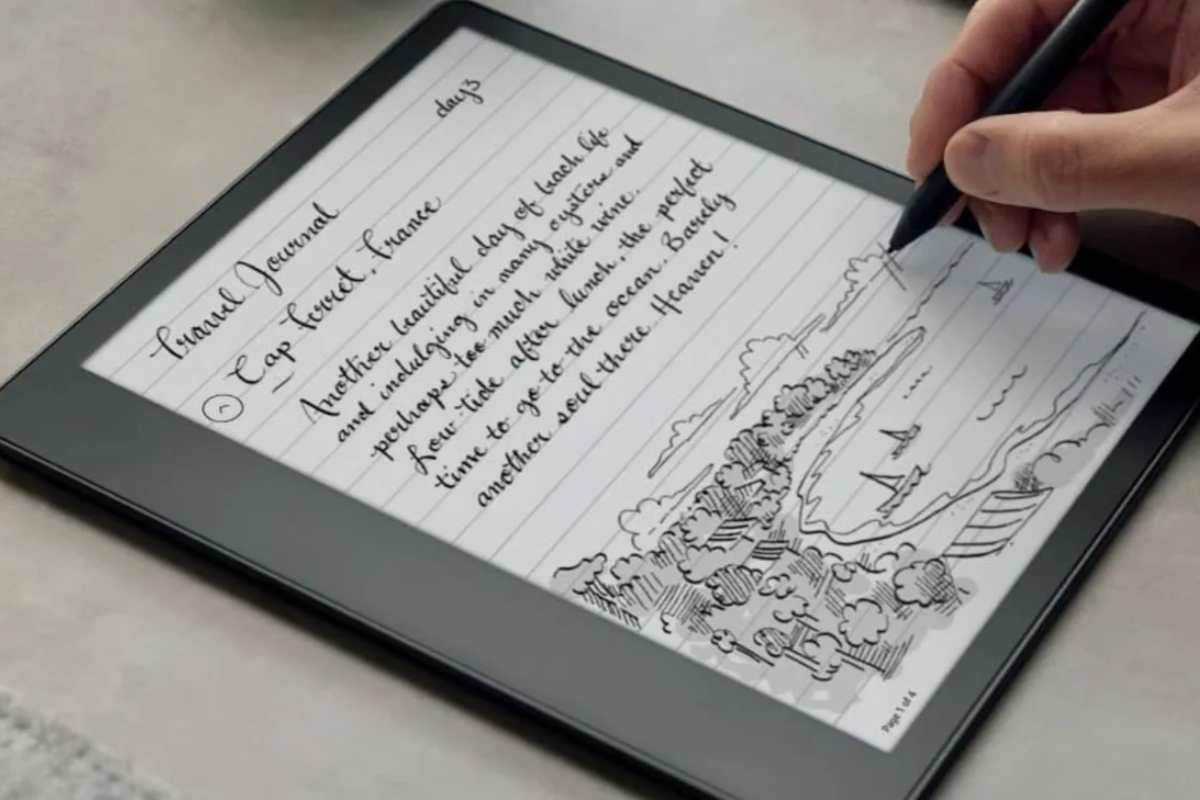 day 3
Travel Journal
Cap Ferret, France
Another beautiful day of beach life
and indulging in many oysters and
perhaps too much white wine.
Low tide after lunch, the perfect
time to go to the ocean. Barely
another soul there. Heaven!
Page 1 of 4